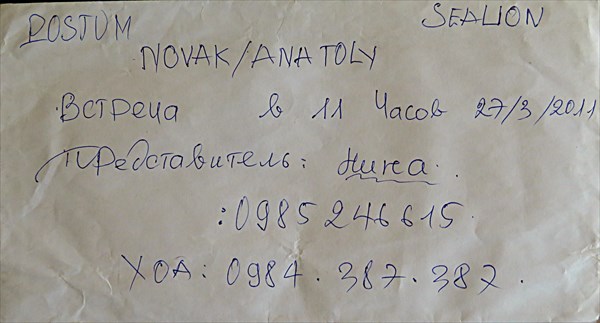 ROSTUM SEALION
NOVAK/ANATOLY
Встреца в 11 Часов 27/3/2011
Представитель: Нина.
: 0985 246615.
ХОА: 0984.387.387.